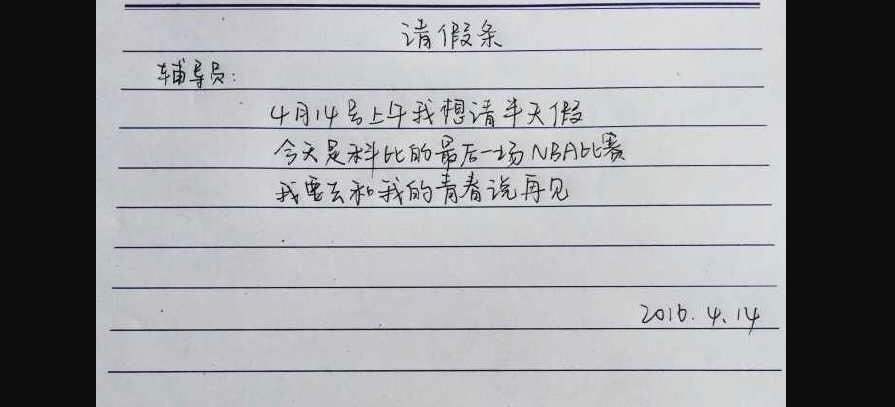 请假条
辅导员:
4月14号上午我想请半天假
今天是科比的最后一场NBA比赛
我要去和我的青春说再见
2016.4.14